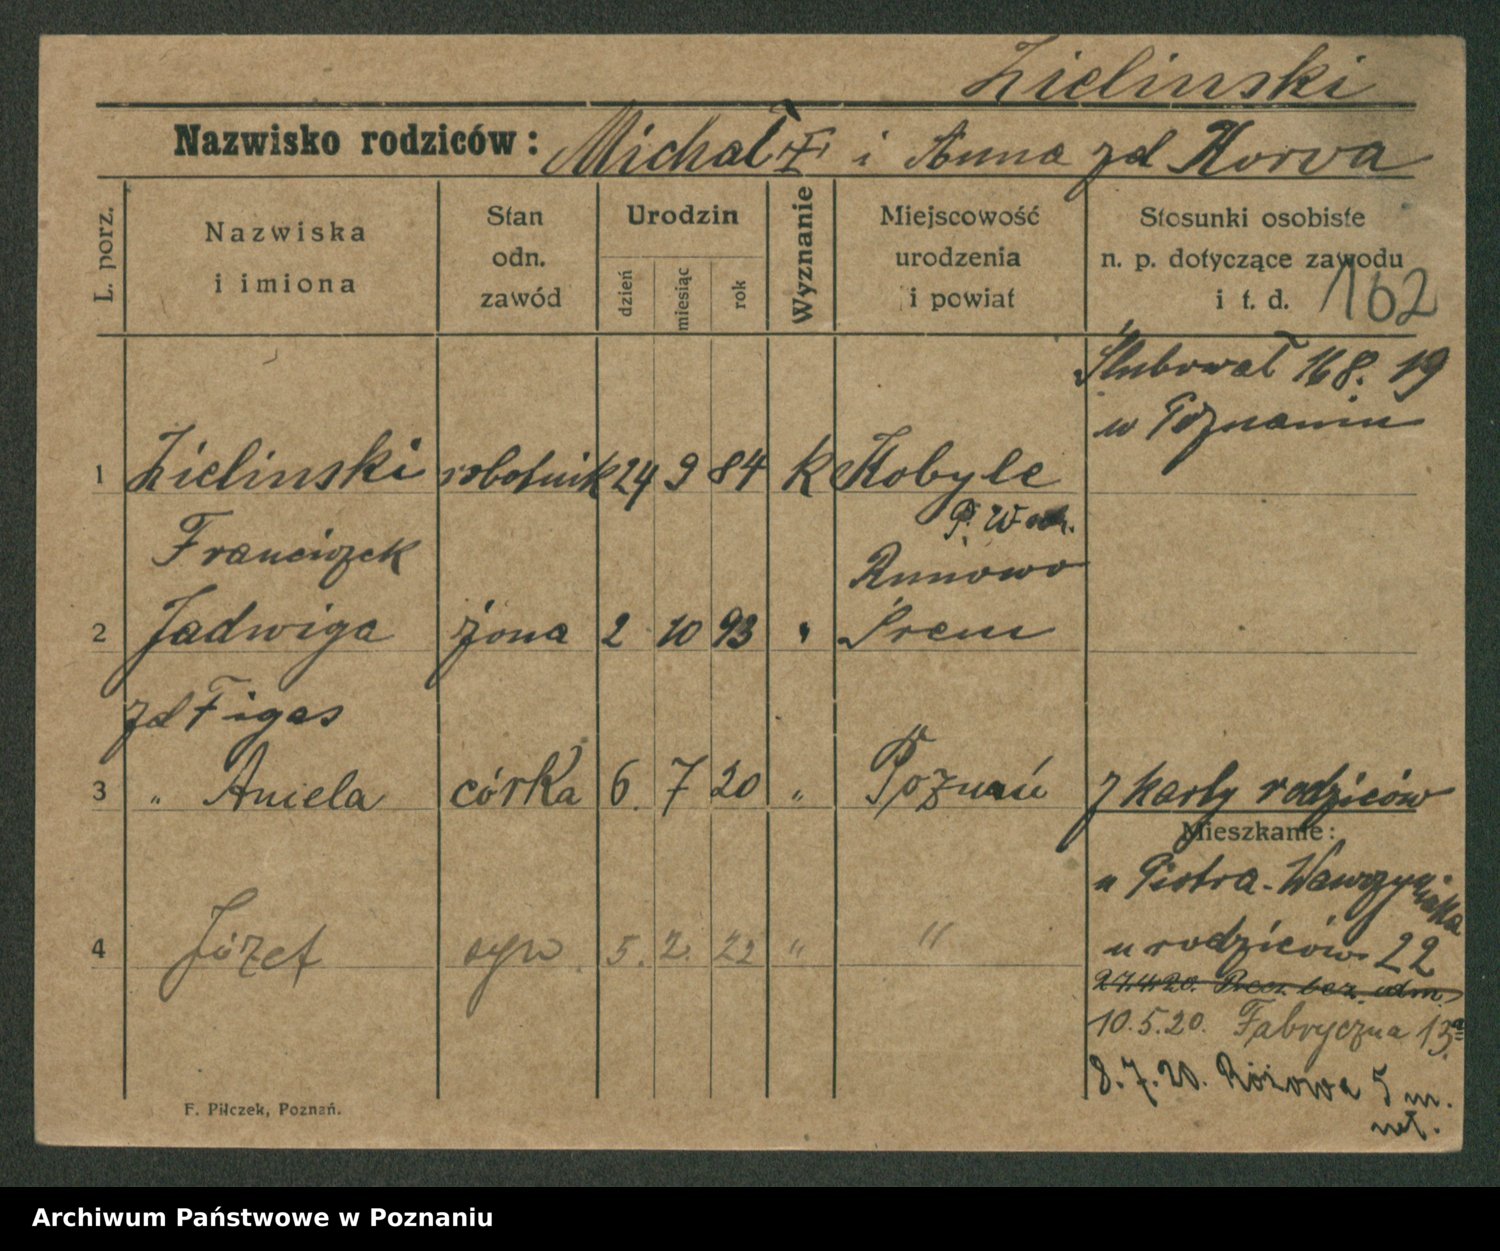 Zielinski
Nazwisko rodziców: Michał Z i Anna zd Korva
L. porz.
Nazwiska
i imiona
Stan
odn.
zawód
Urodzin
dzień
miesiąc
rok
Wyznanie
Miejscowość
urodzenia
i powiat
Stosunki osobiste
n. p. dotyczące zawodu
i t. d.
162
Ślubował 16 8. 19
w Poznaniu
1 Zielinski robotnik 24 9 84 k Kobyle
P. W
Franciszek
Runowo
2 Jadwiga żona 2 10 93 " Śrem
zd Figas
3 " Aniela córka 6. 7 20 " Poznań z karty rodziców
Mieszkanie:
u Piotra-Wawrzyniaka
u rodziców 22
4 Józef syn 5. 2. 22 " "
27.4.20. bez odm.
10.5.20. Fabryczna 13a
8.7.20. Różowa 5 m.
F. Piłczek, Poznań.
Archiwum Państwowe w Poznaniu